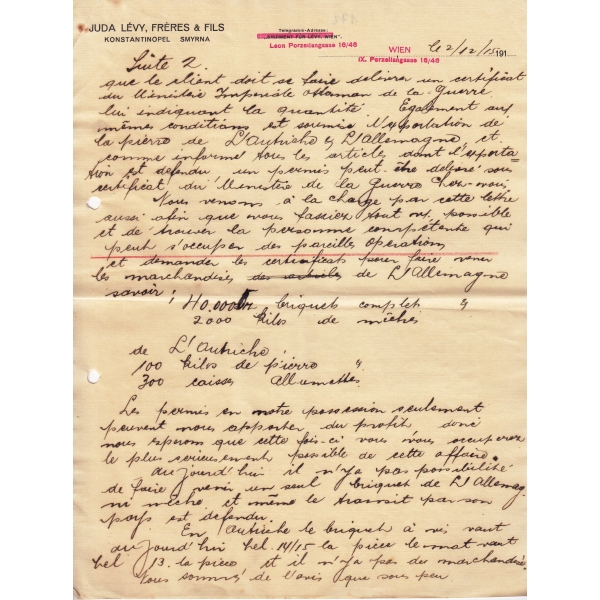 JUDA LÉVY, FRÈRES & FILS
KONSTANTINOPEL SMYRNA
Telegramm-Adresse:
Leon Porzellangasse 16/46
WIEN le 2/12/15 191
IX. Porzellangasse 16/46
Suite 2.
que le client doit se faire delivrer un certificat
du Ministére Imperiale Ottoman de la Guerre
lui indiquant la quantité. Egalement aux
mêmes conditions est soumise l'exportation de
la pierre de L'Autriche & L'Allemagne et
comme informé tous les articles dont l'exporta-
tion est defendu un permis peut être delivré sous
certificat du Ministère de la Guerre chez-nous.
Nous venons à la charge par cette lettre
aussi afin que vous fassiez tout votre possible
et de trouver la personne compétente qui
peut s'occuper des pareilles opérations
et demander les certificats pour faire venir
les marchandises de L'Allemagne
savoir:
40.000 briquet complet
2000 kilos de mêches
de L'Autriche:
100 kilos de pierre
300 caisses allumettes
Les permis en notre possession seulement
peuvent nous apporter du profit donc
nous esperons que cette fois-ci vous vous occuperez
le plus serieusement possible de cette affaire.
aujourd'hui il n'ya pas possibilité
de faire venir un seul briquet de L'Allemag.
ni mêche et même le transit par son
pays est defendu.
En Autriche le briquet à vis vaut
aujourd'hui hel. 14/15 la pièce le mat vaut
hel 13. la piece et il n'ya pas de marchandise.
Nous sommes de l'avis que sous peu